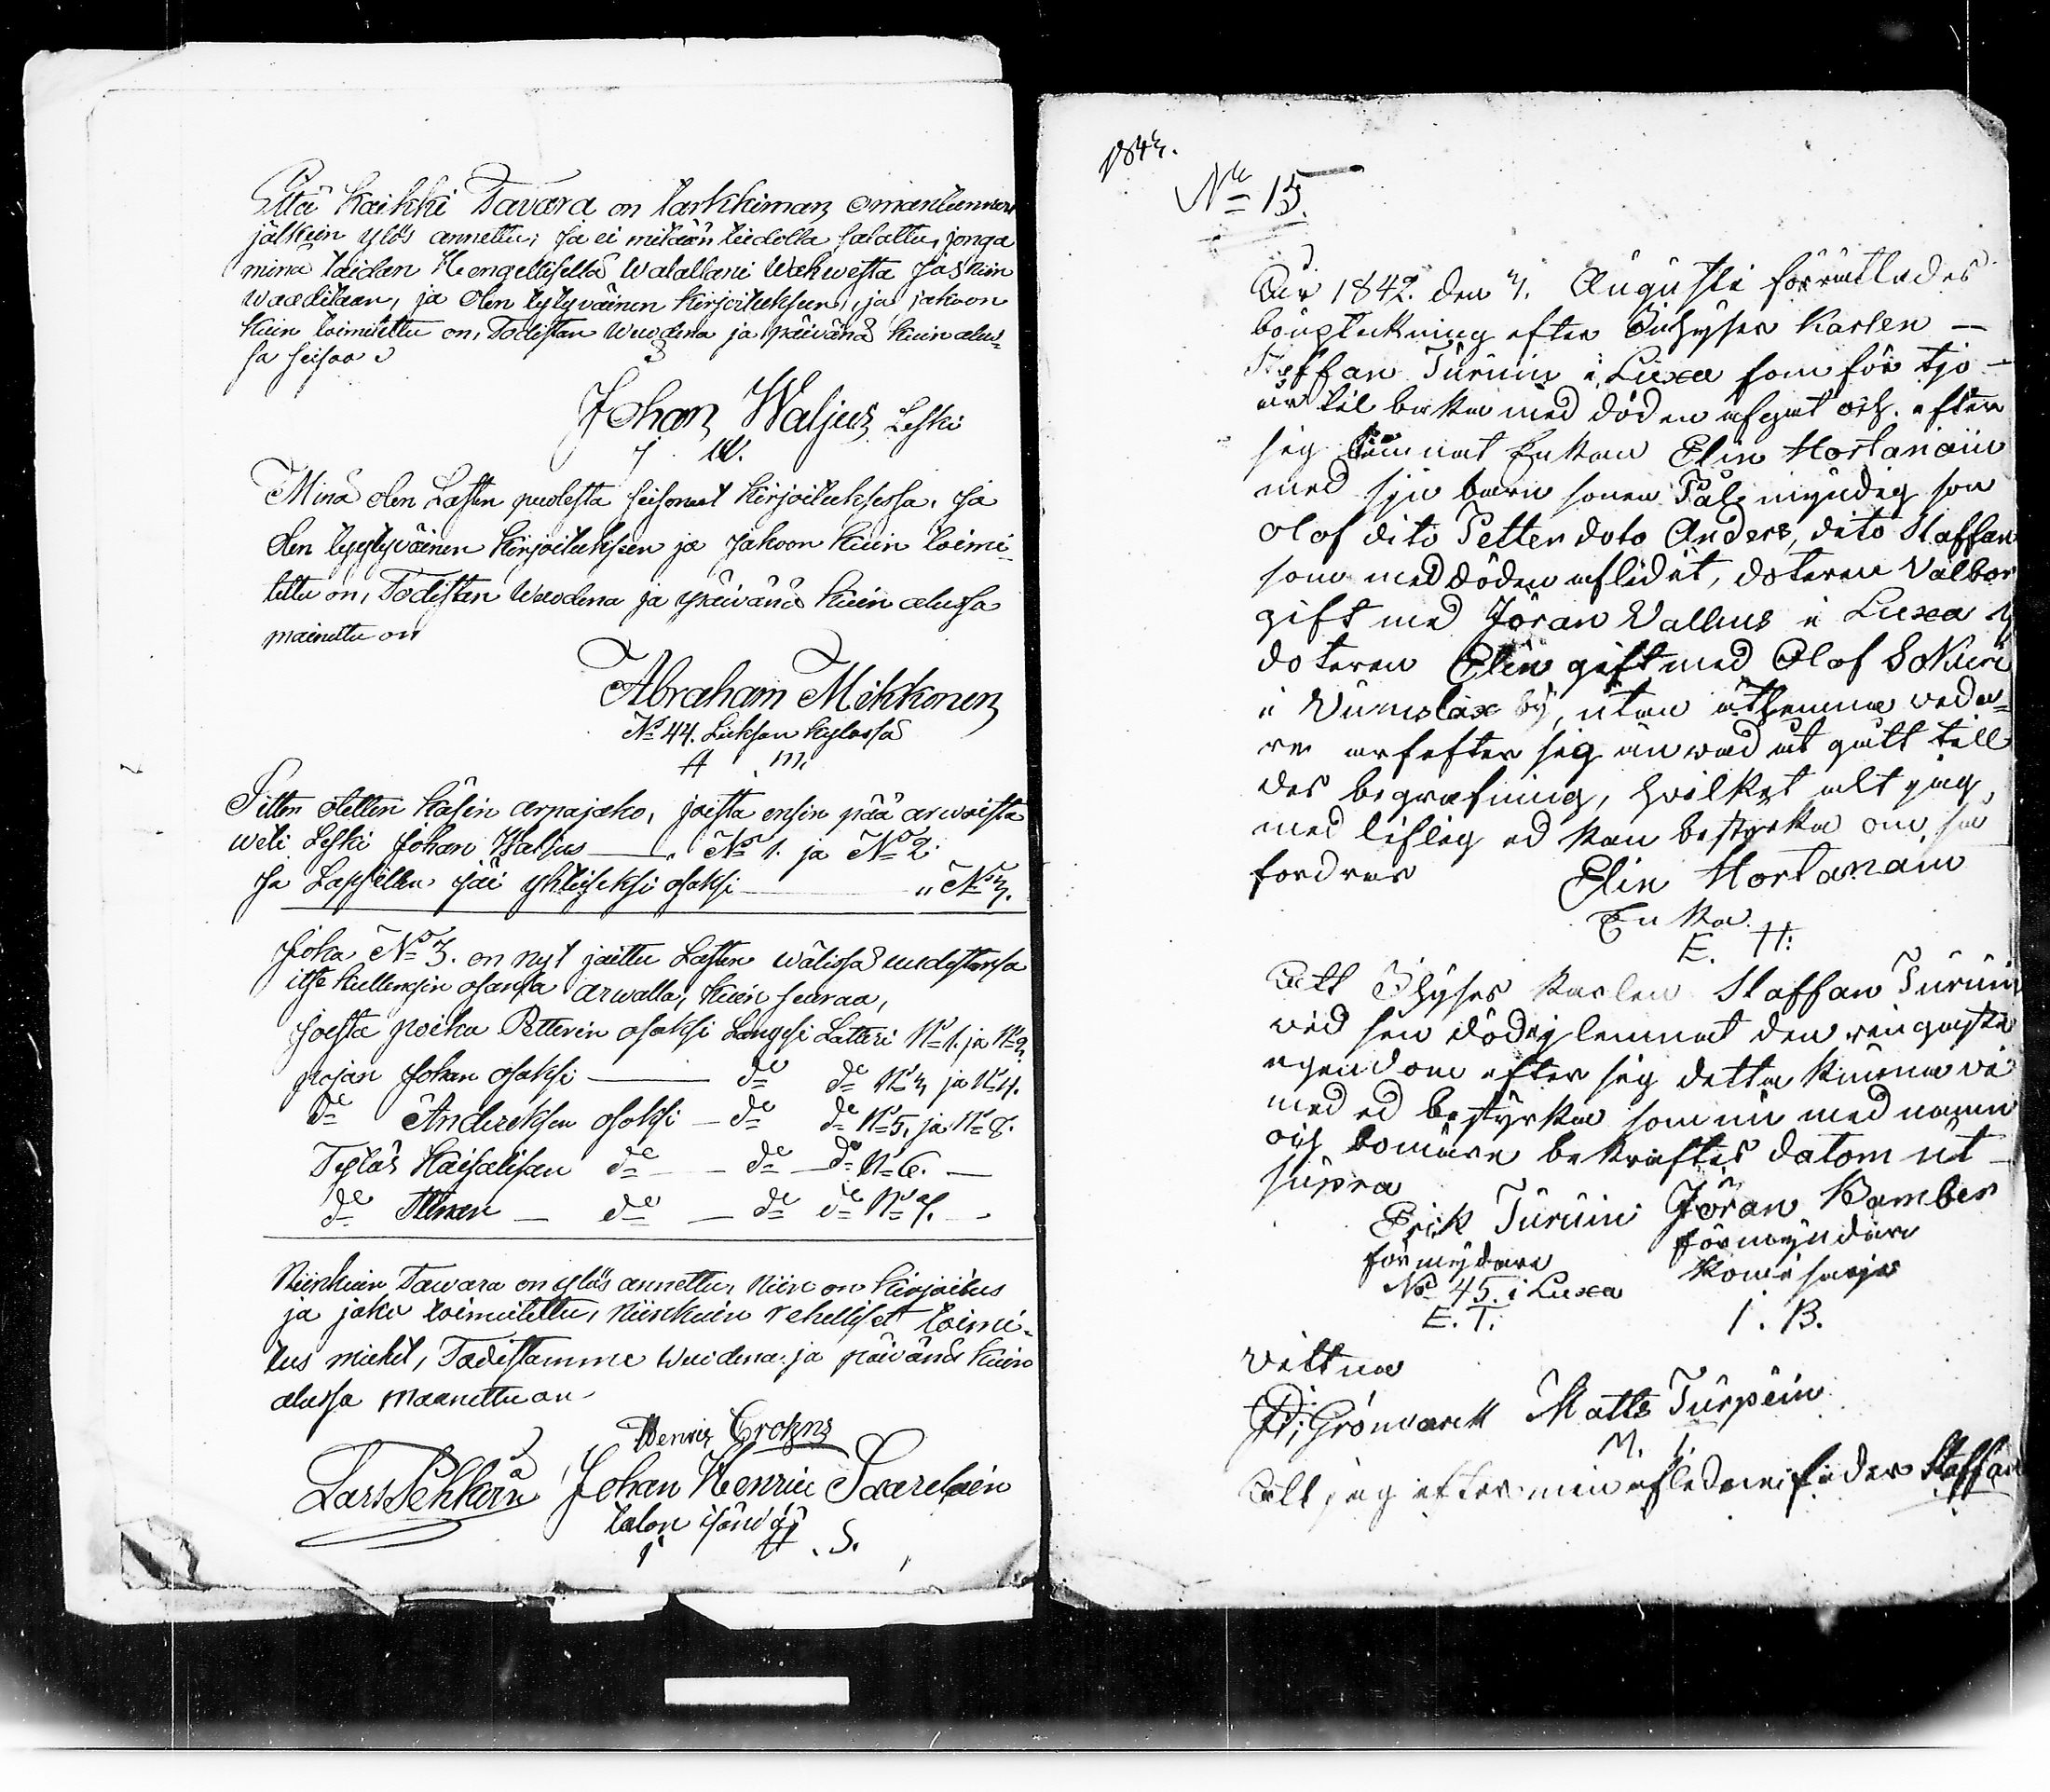 Että Kaikki Tavara on tarkkiman omantunnon
jälkein ylös annettu, ja ei mitään tiedolla salattu, jonga
minä taidan Hengellisellä Walallani Wahwista Joskuin
Waaditaan, ja Olen tytyväinen Kirjoitukseen, ja jakoon
Kuin toimitettu on, Todistan Wuodena ja päivänä Kuin alus-
sa seisoo
Johan Waljus Leski
J. W.
Minä olen Lasten puolesta seisonut Kirjoituksessa. Ja
Olen tyytyväinen Kirjoitukseen ja Jakoon Kuin toimi-
tettu on, Todistan Wuodena ja päivänä Kuin alussa
mainittu on
Abraham Mikkonen
No 44. Luksan Kylässä
A. M.
Sitten otettin Käsin arpajako, joista ensin pää arwoista
weli Leski Johan Waljus — No 1. ja No 2.
Ja Lapsillen jäi yhteiseksi osaksi — " No 3.
Joka No 3. on nyt jaettu Lasten wälissä uudestansa
itse Kullengin osansa arwalla, Kuin seuraa,
Joista poika Petterin osaksi Langesi Lotteri No 1. ja No 2.
pojan Johan osaksi — do do No 3, ja No 4.
do Andereksen osaksi — do do No 5, ja No 8.
Tytär Kaisalisan do — do — do No 6. —
do Annan — do — do do No 7. —
Niinkuin Tawara on ylös annettu, Niin on Kirjoitus
ja jako toimitettu, Niinkuin rehelliset toimi-
tus miehet, Todistamme Wuodena ja päivänä Kuin
alussa Maenittu on
Henric Crohns
Lars Pekkarin Johan Henric Saarelain
talon isändä
J. H. S.
1843.
No 15.
Åür 1842. den 7. Augusti förrättades
bouptekning efter Inhyses Karlen —
Staffan Turuin i Luxa som för tjo-
år til baka med döden afgåt och efter
sig lämnat Enkan Elin Hortanain
med sju barn sonen Pål myndig son
Olof dito Petter doto Anders, dito Staffan
som med döden aflidit, doteren Valbor
gift med Jöran Vallius i Luxa by
doteren Elin gift med Olof Sokuri
i Vumslax by, utan åthemma veda-
re arf efter sig än vad åt gått till
des begrafning, hvilket alt jag,
med liflig ed kan bestyrka om så
fordras Elin Hortanain
Enka
E. H.
Att Ihyses karlen Staffan Turuin
vid sin död ej lemnat den ringaste
egendom efter sig detta kunna vi
med ed bestyrka som nu med namn
och bomärn bekraftes datom ut
supra
Erik Turuin Jöran Bamber
förmydare förmyndare
No 45. i Luxa
E. T. I. B.
Vittna
Grönvarck Matts Turpein
M. T.
Att jag efter min afledne fader Staffan